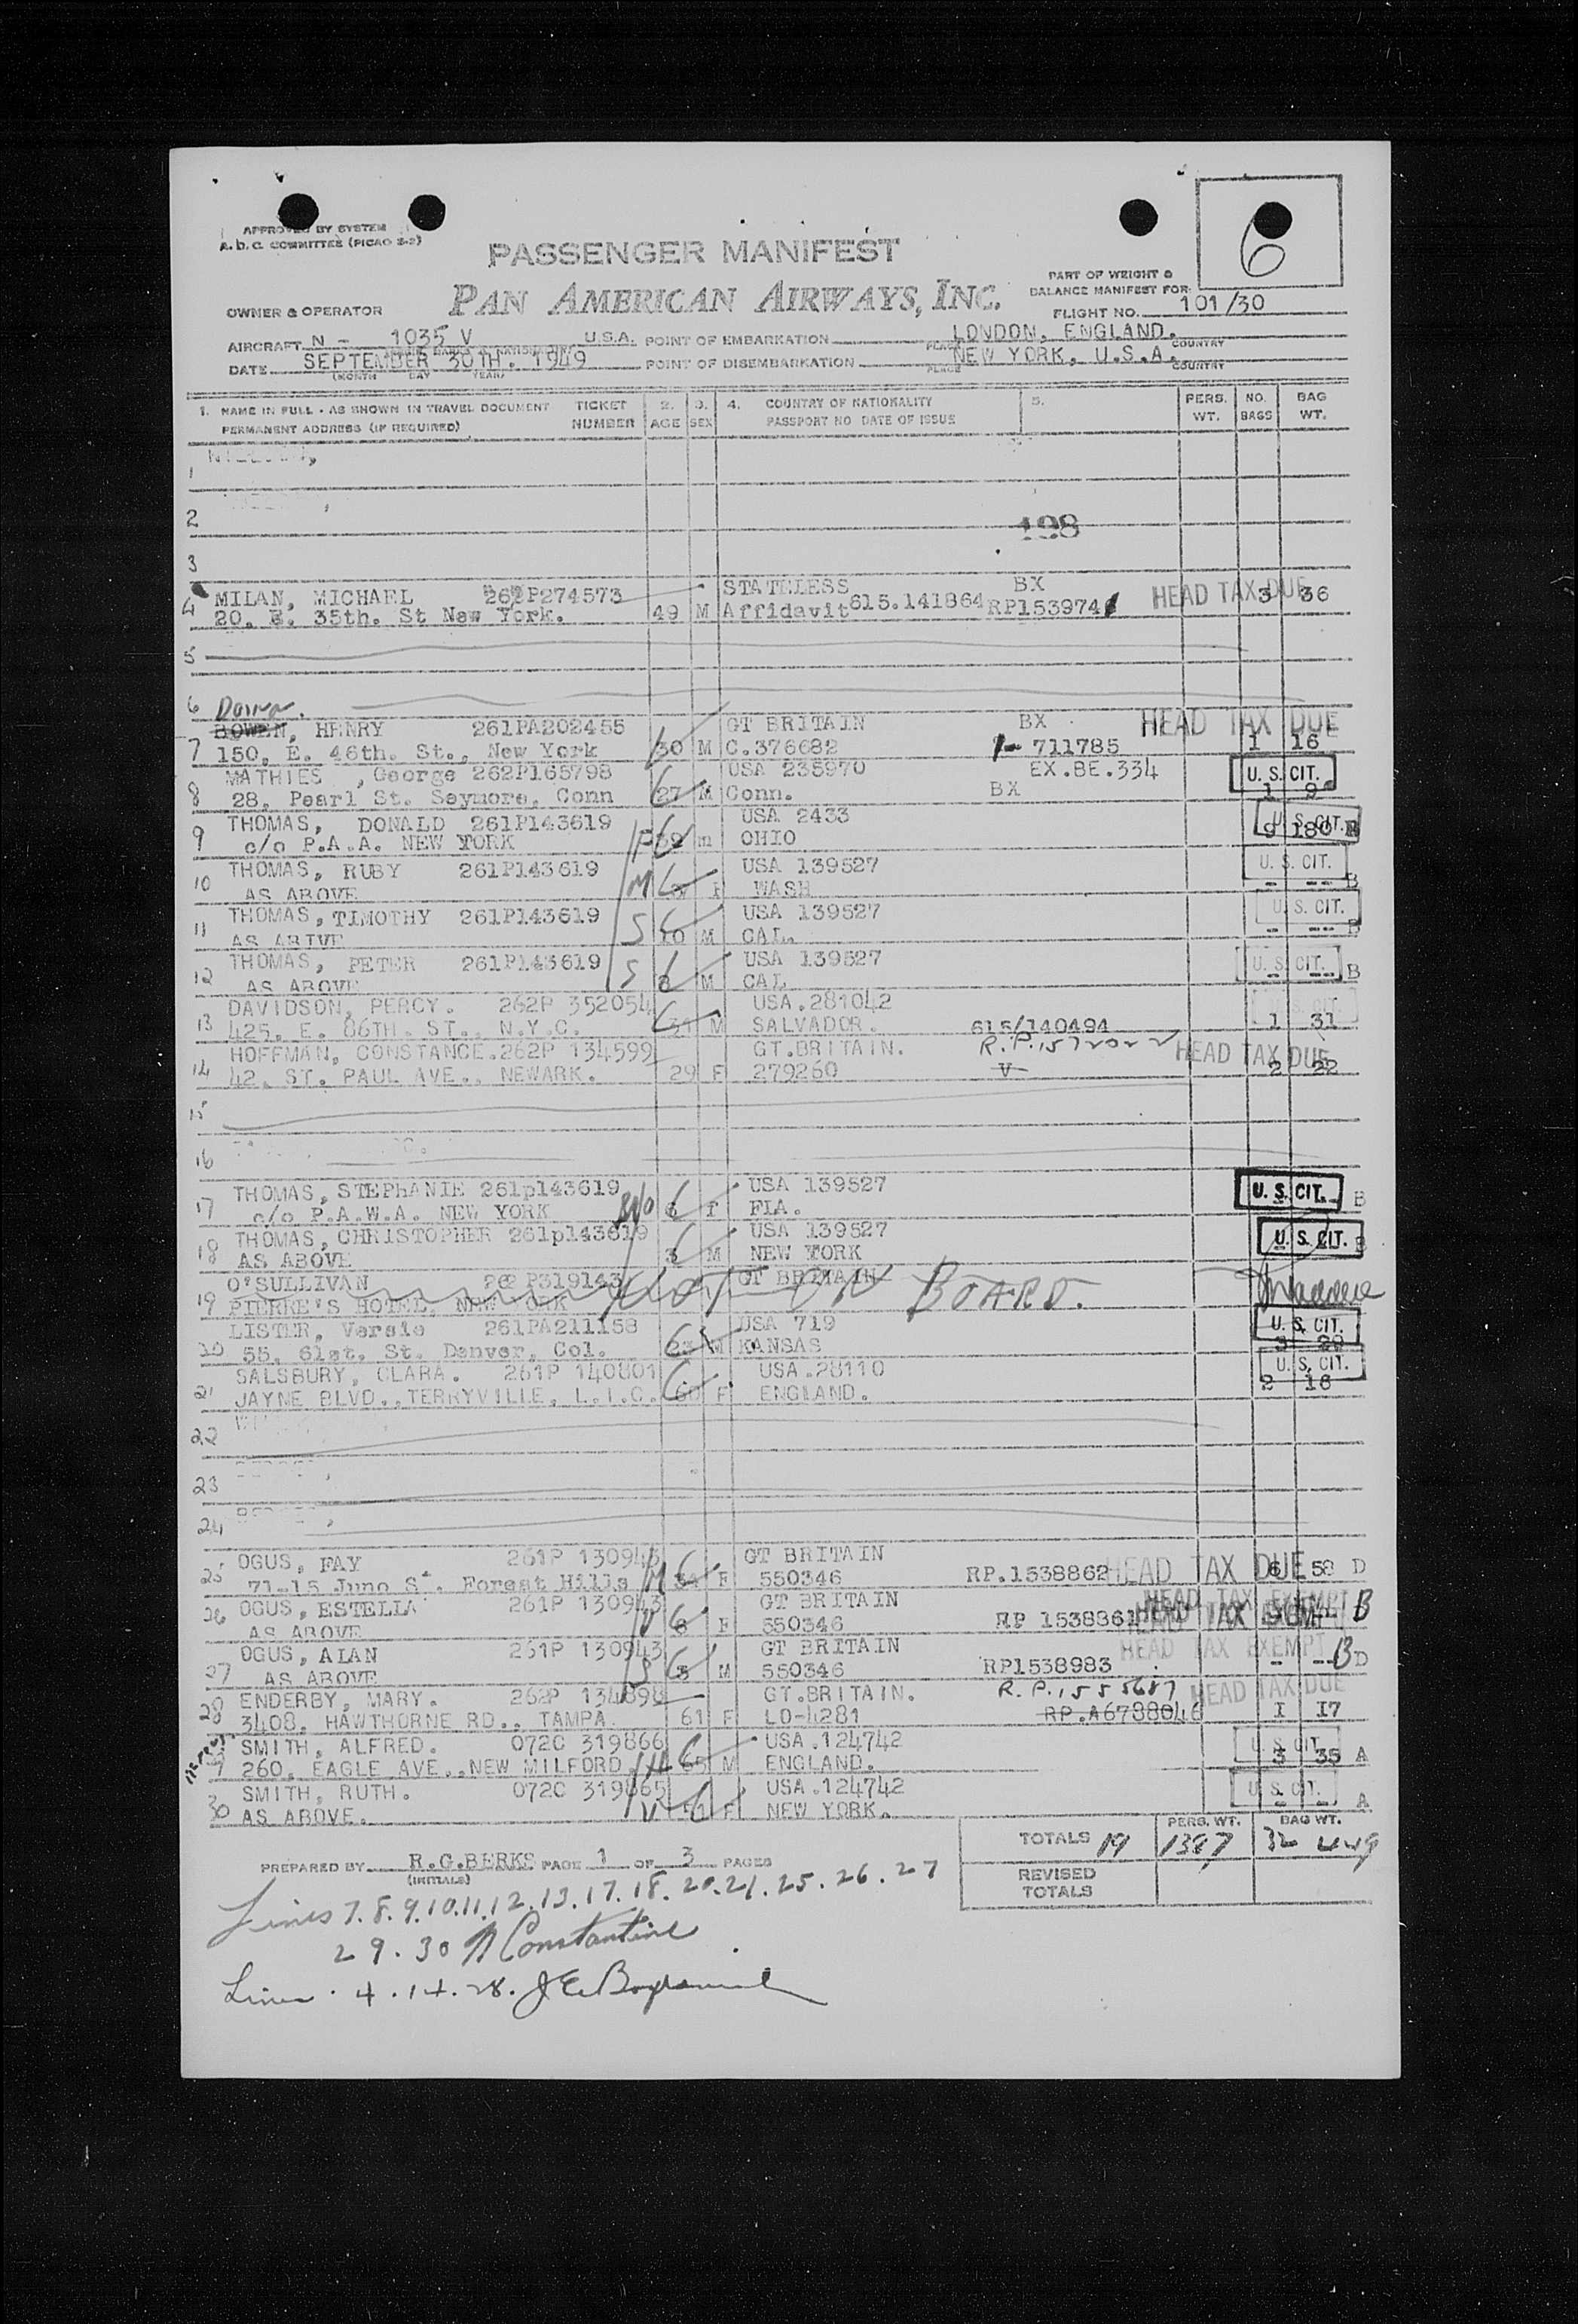 6
APPROVED BY SYSTEM
A.D.C. COMMITTEE (PICAO 2-2)
PASSENGER MANIFEST
PAN AMERICAN AIRWAYS, INC.
PART OF WEIGHT &
BALANCE MANIFEST FOR:
OWNER & OPERATOR
FLIGHT NO. 101/30
AIRCRAFT N - 1035 V U.S.A. POINT OF EMBARKATION LONDON, ENGLAND.
PLACE COUNTRY
DATE SEPTEMBER 30TH. 1949 POINT OF DISEMBARKATION NEW YORK, U.S.A.
(MONTH DAY YEAR) PLACE COUNTRY
1. NAME IN FULL - AS SHOWN IN TRAVEL DOCUMENT TICKET 2. 3. 4. COUNTRY OF NATIONALITY 5. PERS. NO. BAG
PERMANENT ADDRESS (IF REQUIRED) NUMBER AGE SEX PASSPORT NO DATE OF ISSUE WT. BAGS WT.
1
2 198
3
4 MILAN, MICHAEL P274573 STATELESS BX HEAD TAX DUE
20. E. 35th. St New York. 49 M Affidavit 615.141864 3 36
5
6 
BOWEN, HENRY 261PA202455 GT BRITAIN BX HEAD TAX DUE
7 150, E. 46th. St., New York 30 M C.376682 711785 1 16
MATHIES , George 262P165798 USA 235970 EX.BE.334 U. S. CIT.
8 28, Pearl St. Seymore, Conn 27 M Conn. BX 1 9
9 THOMAS, DONALD 261P143619 USA 2433 U. S. CIT.
c/o P.A.A. NEW YORK F m OHIO 9 180
THOMAS, RUBY 261P143619 USA 139527 U. S. CIT.
10 AS ABOVE M F WASH - -- B
THOMAS, TIMOTHY 261P143619 USA 139527 U. S. CIT.
11 S 10 M CAL. - -- B
THOMAS, PETER 261P143619 USA 139527 U. S. CIT.
12 AS ABOVE S M CAL - -- B
DAVIDSON, PERCY. 262P 352054 USA.281042 U. S. CIT.
13 425. E. 86TH. ST., N.Y.C. M SALVADOR. 615/140494 1 31
HOFFMAN, CONSTANCE. 262P 134599 GT.BRITAIN. HEAD TAX DUE
14 42. ST. PAUL AVE., NEWARK. 29 F 279260 V 2 22
15
16
THOMAS, STEPHANIE 261p143619 USA 139527 U. S. CIT. B
17 c/o P.A.W.A. NEW YORK 6 F FLA.
THOMAS, CHRISTOPHER 261p143619 USA 139527 U. S. CIT.
18 AS ABOVE 3 M NEW YORK
O'SULLIVAN P319143 GT BRITAIN NOT ON BOARD.
19 PIERRE'S HOTEL, NEW YORK
LISTER, Versie 261PA211158 USA 719 U. S. CIT.
20 55, 61st. St. Denver, Col. 23 KANSAS 3 20
SALSBURY, CLARA. 261P 140801 USA.28110 U. S. CIT.
21 JAYNE BLVD., TERRYVILLE, L.I.C. 60 F ENGLAND. 2 18
22
23
24
25 OGUS, FAY 261P 130943 GT BRITAIN HEAD TAX DUE
71-15 Juno St. Forest Hills M 34 F 550346 RP.1538862 6 58 D
26 OGUS, ESTELLA 261P 130943 GT BRITAIN HEAD TAX EXEMPT B
AS ABOVE 8 F 550346 RP 1538861
OGUS, ALAN 261P 130943 GT BRITAIN HEAD TAX EXEMPT
27 AS ABOVE S M 550346 RP1538983 - -- B D
28 ENDERBY, MARY. 262P 134898 GT.BRITAIN. R.P.1555687 HEAD TAX DUE
3408. HAWTHORNE RD., TAMPA. 61 F LO-4281 RP.A6788046 I I7
SMITH, ALFRED. 072C 319866 USA.124742 U. S. CIT.
260. EAGLE AVE., NEW MILFORD H M ENGLAND. 3 35 A
SMITH, RUTH. 072C 319865 USA.124742 U. S. CIT.
30 AS ABOVE. F NEW YORK. - - A
PERS. WT. BAG WT.
TOTALS 19 1387 32 449
PREPARED BY R.G.BERKS PAGE 1 OF 3 PAGES
(INITIALS)
REVISED
TOTALS
Lines 7.8.9.10.11.12.13.17.18.20.21.25.26.27
29.30 Constantine
Lines . 4.14.28.